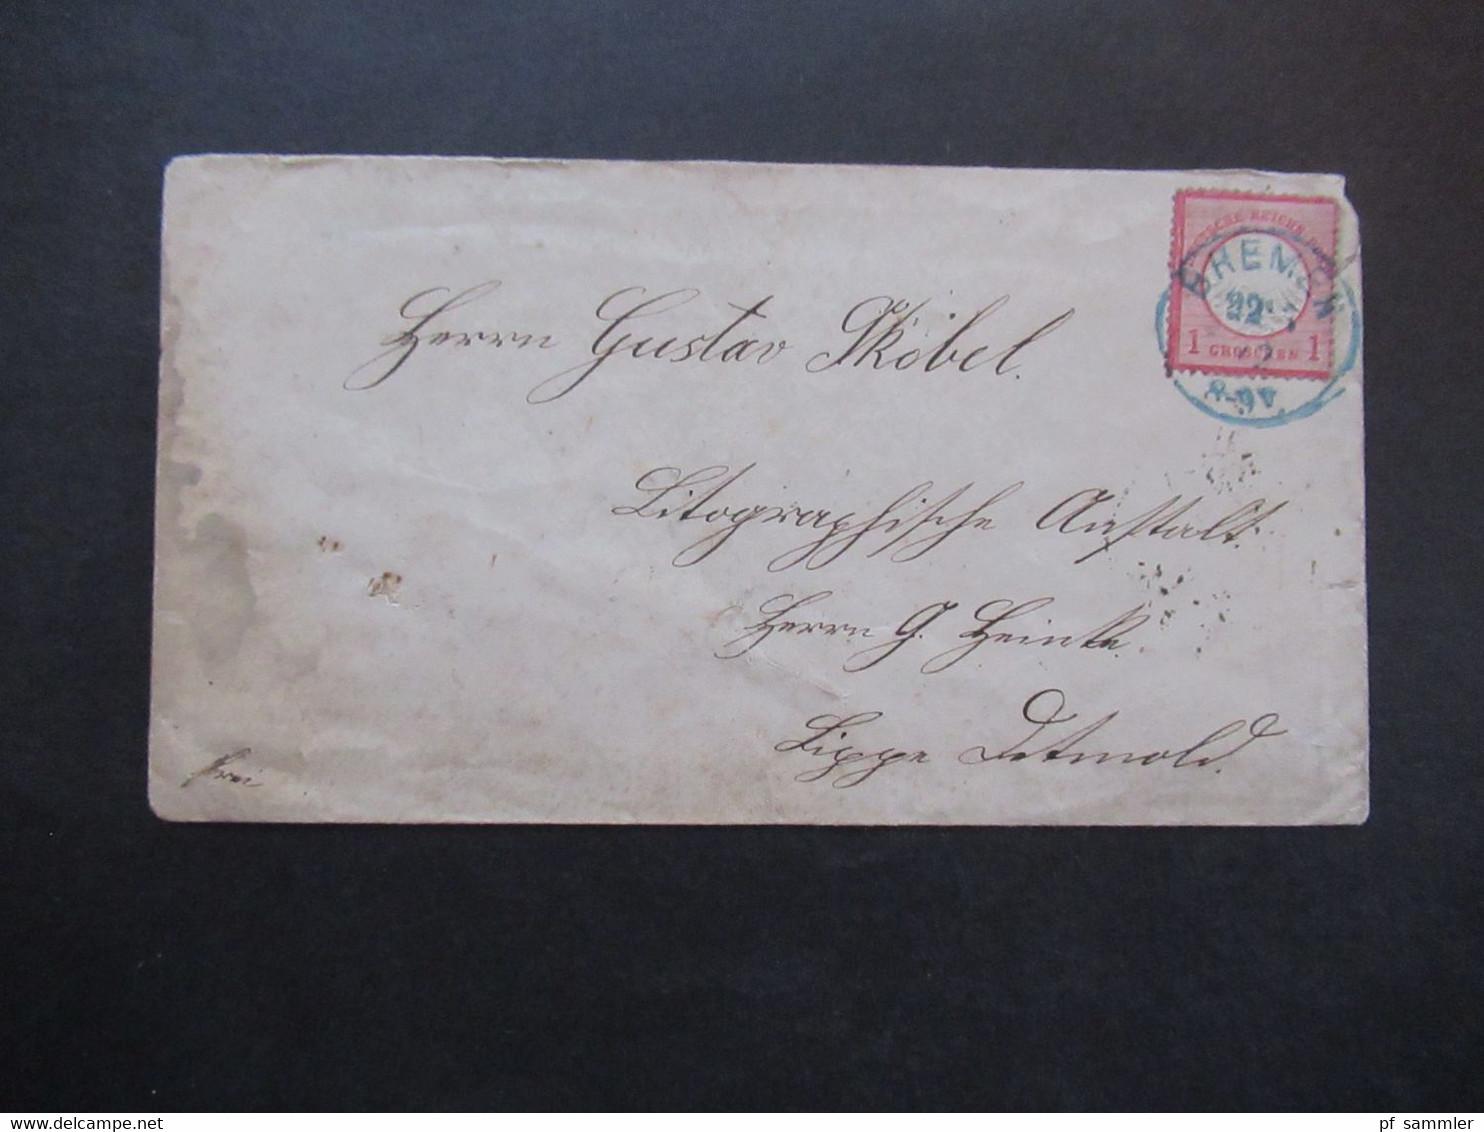 DEUTSCHE REICHS-POST
BREMEN
22
1 GROSCHEN 1
8-9V.
Herrn Gustav Sköbel.
Litographische Anstalt.
Herrn G. Heinke.
Lippe Detmold.
frei
www.delcampe.net
pf_sammler